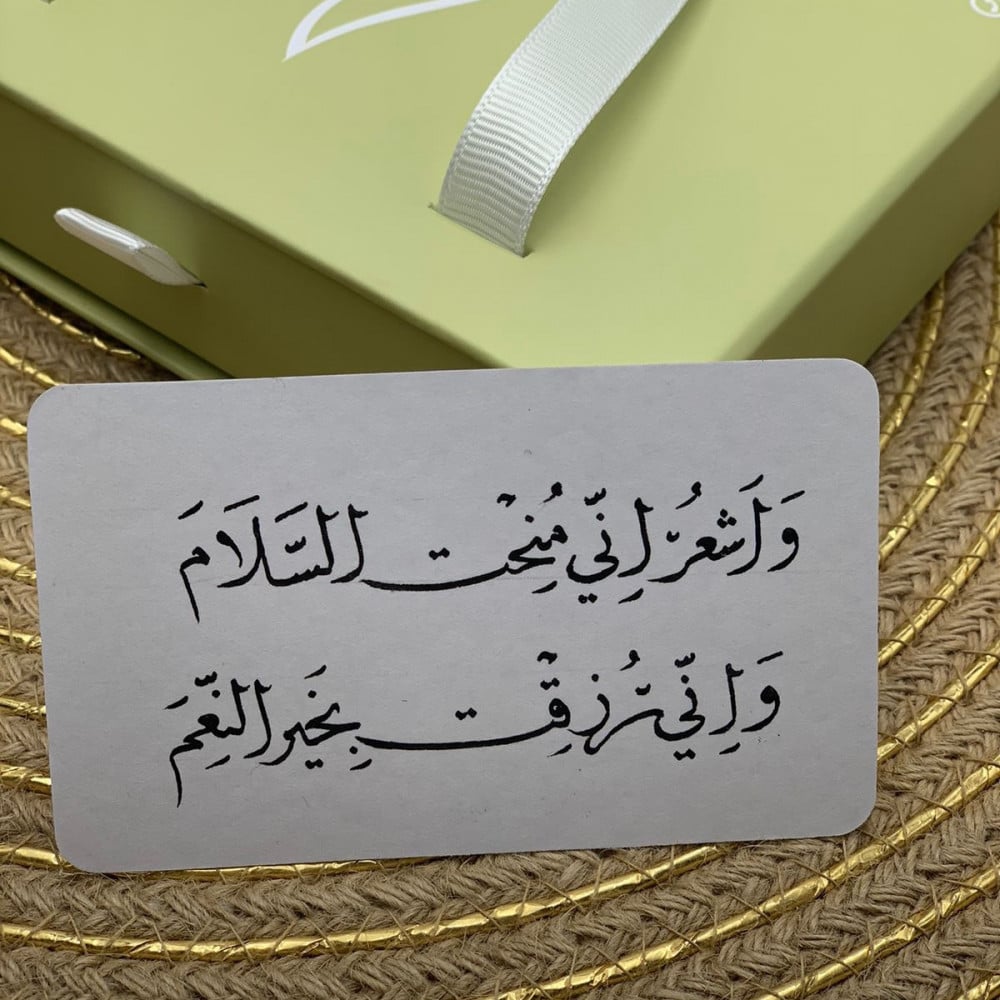 وَأَشعُرُ إنِّي مُنِحت السَّلَامَ
وَإنِّي رُزِقت بِخَير النِّعَم